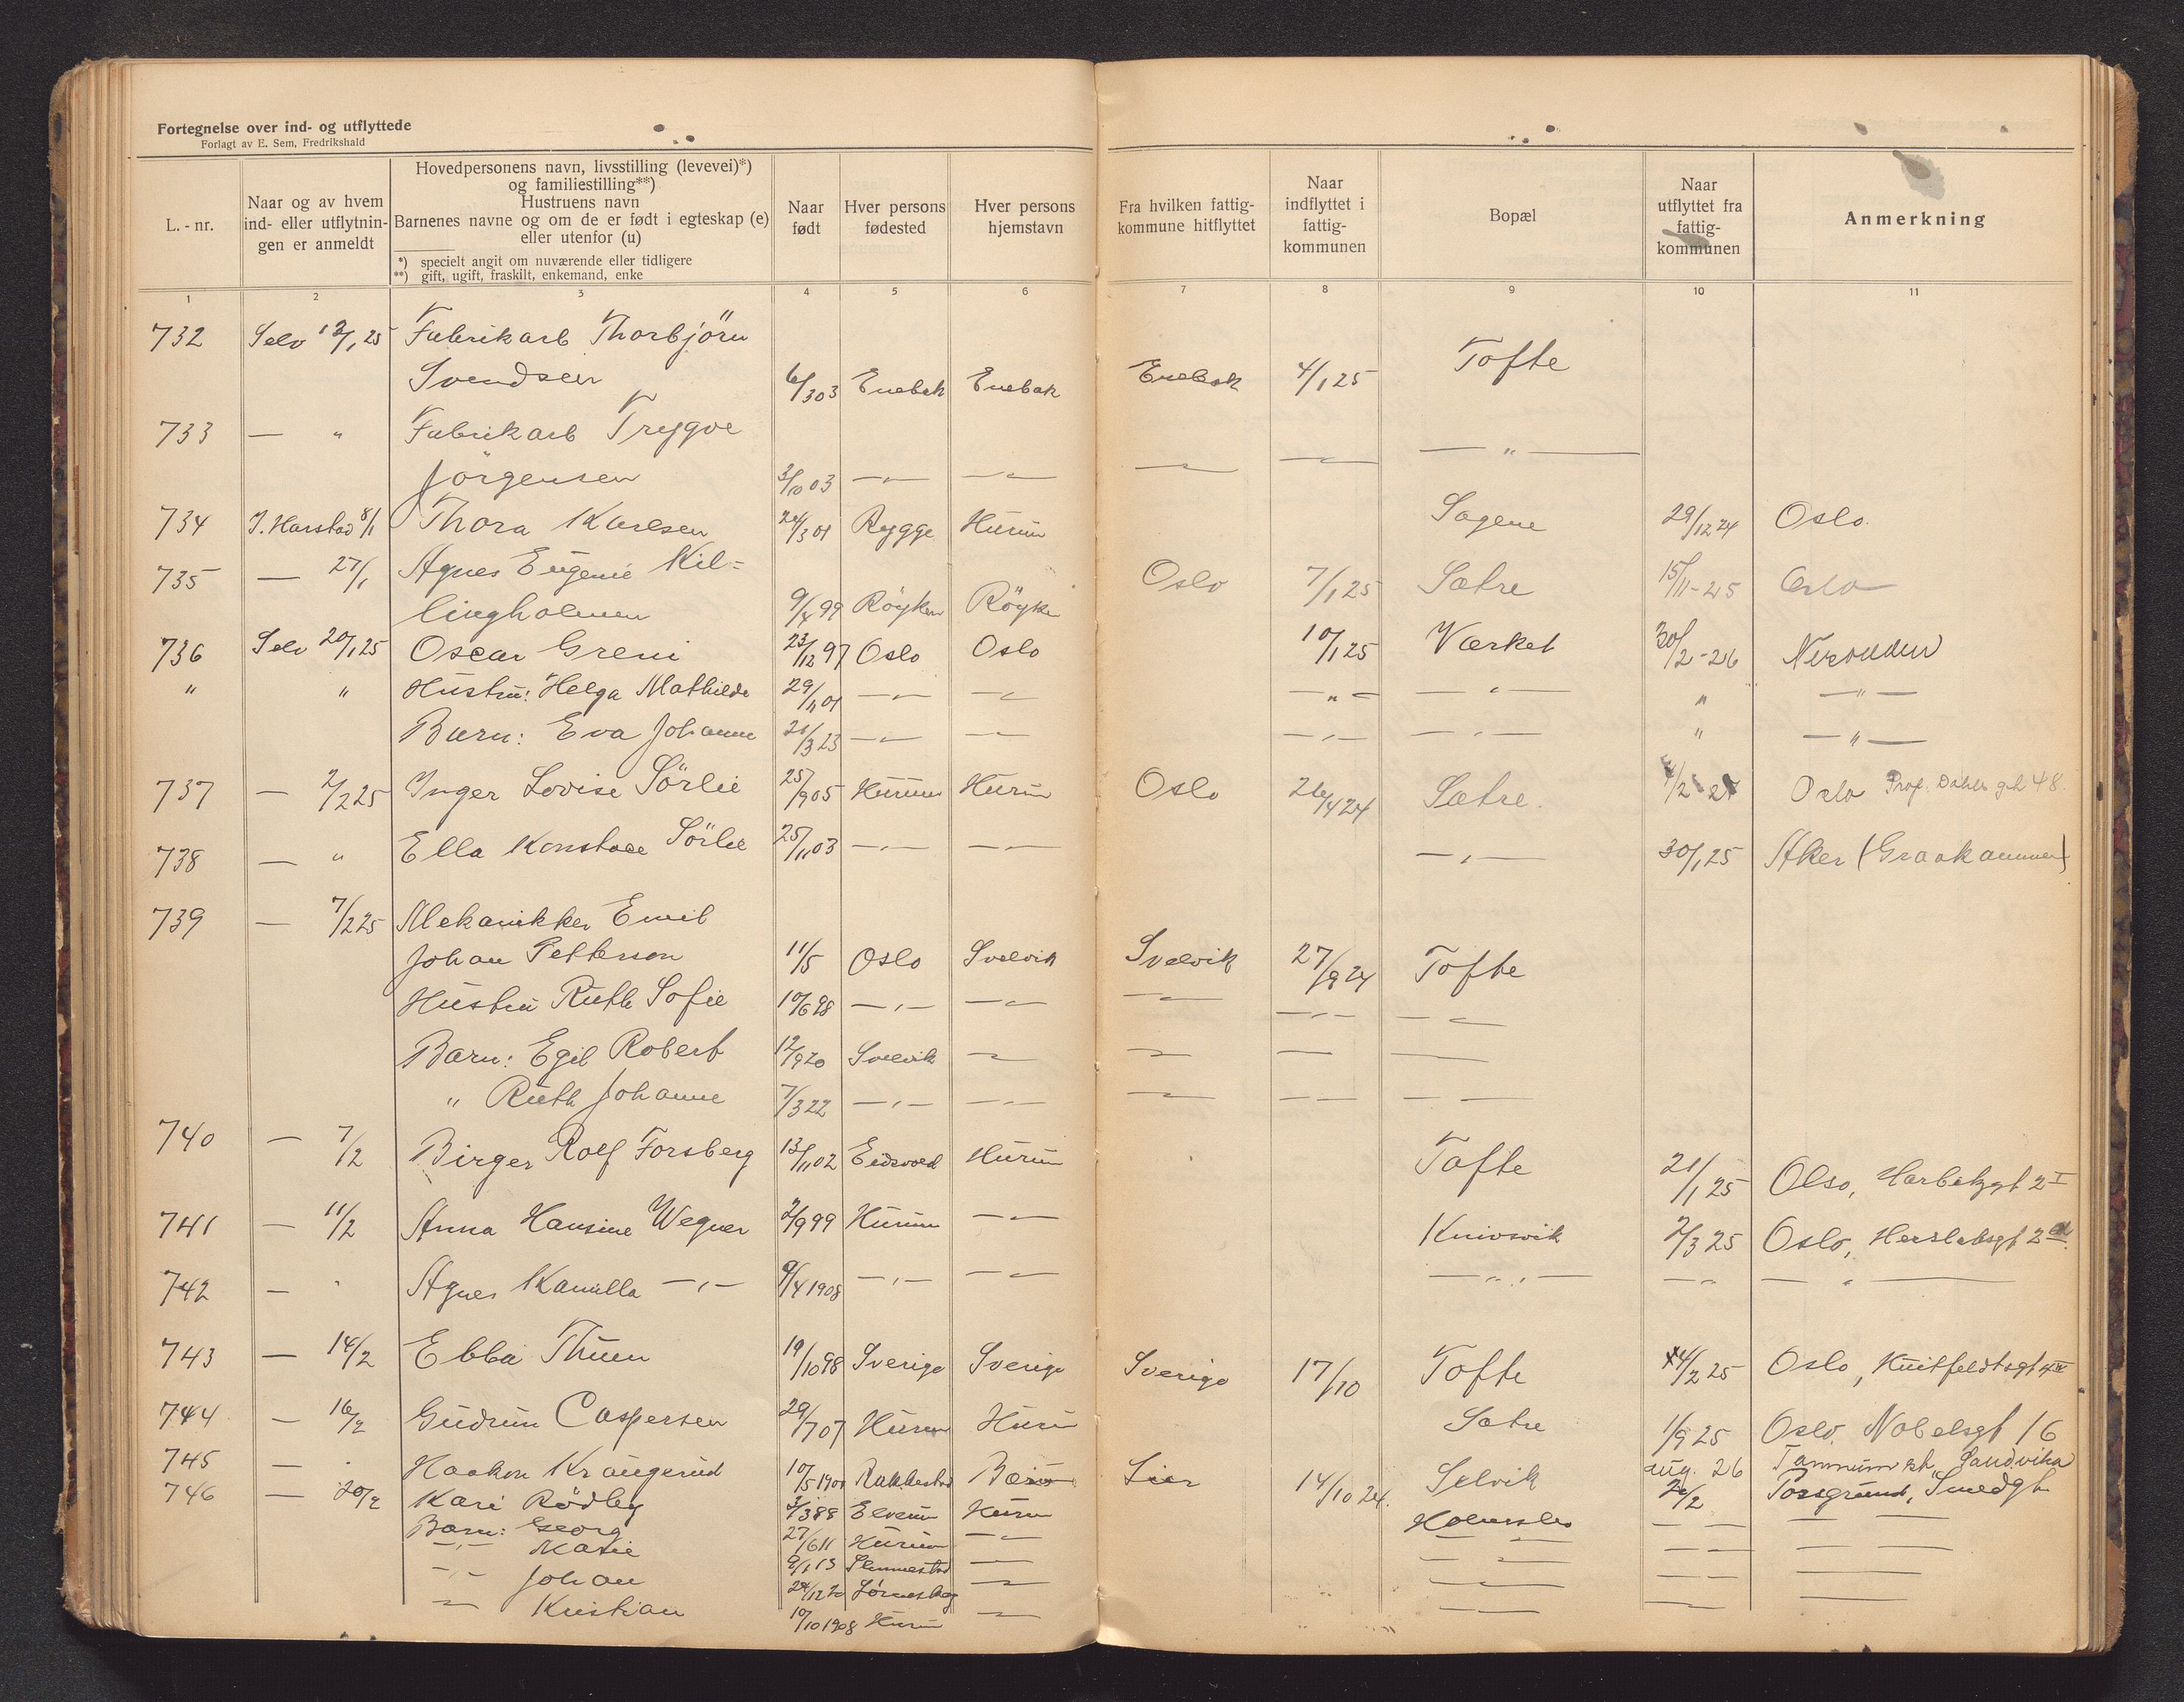 Fortegnelse over ind- og utflyttede
Forlagt av E. Sem, Fredrikshald
L. - nr.
Naar og av hvem
ind- eller utflytnin-
gen er anmeldt
Hovedpersonens navn, livsstilling (levevei)*)
og familiestilling**)
Hustruens navn
Barnenes navne og om de er født i egteskap (e)
eller utenfor (u)
*) specielt angit om nuværende eller tidligere
**) gift, ugift, fraskilt, enkemand, enke
Naar
født
Hver persons
fødested
Hver persons
hjemstavn
Fra hvilken fattig-
kommune hitflyttet
Naar
indflyttet i
fattig-
kommunen
Bopæl
Naar
utflyttet fra
fattig-
kommunen
Anmerkning
1 2 3 4 5 6 7 8 9 10 11
732 Selv 12/1 25 Fabrikarb Thorbjörn
Svendsen 6/3 03 Enebak Enebak Enebak 4/1 25 Tofte
733 — " Fabrikarb Trygve
Jörgensen 3/10 03 —"— —"— —"— —"— —"—
734 J. Harstad 8/1 Thora Karlsen 24/3 01 Rygge Hurum Sagene 29/12 24 Oslo
735 — 27/1 Agnes Eugenie Kil=
lingholmen 9/4 99 Röyken Röyken Oslo 7/1 25 Sætre 15/11-25 Oslo
736 Selv 20/1 25 Oscar Greni 23/12 97 Oslo Oslo 10/1 25 Værket 30/2-26
" " Hustru: Helga Mathilde 29/11 01 —"— —"— —"— —"— " —"—
Barn: Eva Johanne 21/3 23 —"— —"— —"— —"— " —"—
737 — 2/2 25 Inger Lovise Sörlie 25/9 05 Hurum Hurum Oslo 26/4 24 Sætre. Oslo Prof. Dahls gt 48.
738 — " Ella Konstace Sörlie 25/11 03 —"— —"— —"— 30/1 25 Aker (Graakammen)
739 — 7/2 25 Mekanikker Emil
Johan Petterson 11/5 Oslo Svelvik Svelvik 27/9 24 Tofte
Hustru Ruth Sofie 10/6 98 —"— —"— —"— —"— —"—
Barn: Egil Robert 12/9 20 Svelvik —"— —"— — —
" Ruth Johanne 7/3 22 —"— —"— —"— — — — —
740 — 7/2 Birger Rolf Forsberg 13/11 02 Eidsvold Hurum Tofte 21/1 25 Olso, Harbitzgt 2 I
741 — 11/2 Anna Hansine Wegner 2/9 99 Hurum —"— Knivsvik 2/3 25 Oslo, Herslebsgt 2
742 — " Agnes Kamilla —"— 9/4 1908 —"— —"— —"— —"— —"—
743 — 14/2 Ebba Thuen 19/10 98 Sverige Sverige Sverige 17/10 Tofte 14/2 25 Oslo, Huitfeldtsgt 4
744 — 16/2 Gudrun Caspersen 29/7 07 Hurum Hurum Sætre 1/9 25 Oslo. Nobelsgt 16
745 — " Haakon Kraugerud 10/5 1901 Rakkestad Lier 14/10 24. Selvik aug. 26 Tannum st, Sandvika
746 — 20/2 Kari Rödby 3/3 88 Elverum Hurum Holmsbo 20/2 Porsgrund, Smedgt
Barn: Georg 27/6 11 Hurum —"— —"— — — — —
—"— Marie 9/1 13 Slemmestad —"— —"— — — — —
—"— Johan 24/12 20 Lörenskog —"— —"— — — —
—"— Kristian 10/10 1908 Hurum —"— —"— — — —